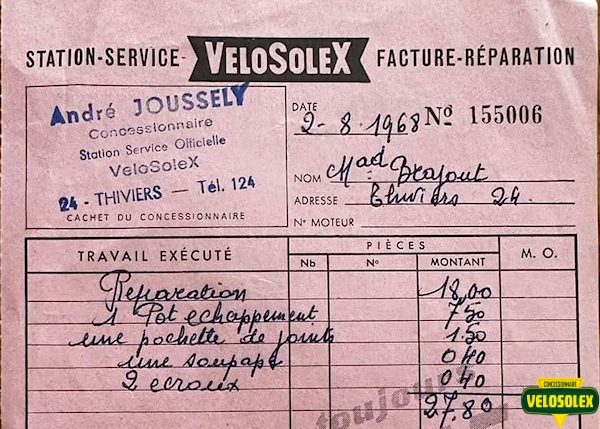 STATION-SERVICE- VELOSOLEX FACTURE-RÉPARATION
André JOUSSELY
Concessionnaire
Station Service Officielle
VeloSoleX
24 - THIVIERS — Tél. 124
CACHET DU CONCESSIONNAIRE
DATE 2-8-1968 No 155006
NOM Mad
ADRESSE Thiviers 24.
No MOTEUR
TRAVAIL EXÉCUTÉ PIÈCES M. O.
Nb No MONTANT
Réparation 18,00
1 Pot echappement 7,50
une pochette de joints 1.50
une soupape 0 40
2 ecroux 0 40
27.80
toujours
CONCESSIONNAIRE
VELOSOLEX